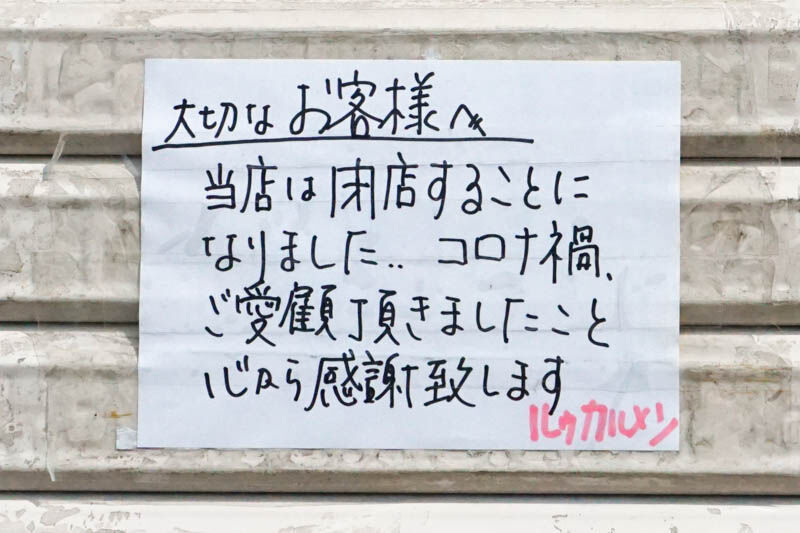 大切なお客様へ
当店は閉店することに
なりました.. コロナ禍、
ご愛顧頂きましたこと
心から感謝致します
ルゥカルメン